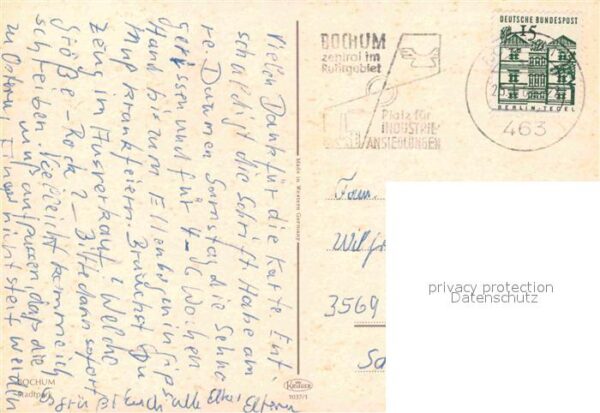 Vielen Dank für die Karte. Ent-
schuldigt die Schrift. Habe am
re. Daumen Samstag die Sehne
gerissen und für 4-6 Wochen
Hand bis zum Ellenbogen in Gips
Muß krankfeiern. Brauchst Du
Zelt im Ausverkauf? Welche
Größe - Rock? - Bitte dann sofort
schreiben. Vielleicht kommen ich
zu Ostern, muß aufpassen, daß die
Finger nicht steif werden
Es grüßt Euch alle Eltern
BOCHUM
Stadtpark
Made in Western Germany
Krüger
1037/1
BOCHUM
zentral im
Ruhrgebiet
Platz für
INDUSTRIE-
ANSIEDLUNGEN
DEUTSCHE BUNDESPOST
15
BERLIN-TEGEL
463
Fam.
Wilf
3569
privacy protection
Datenschutz